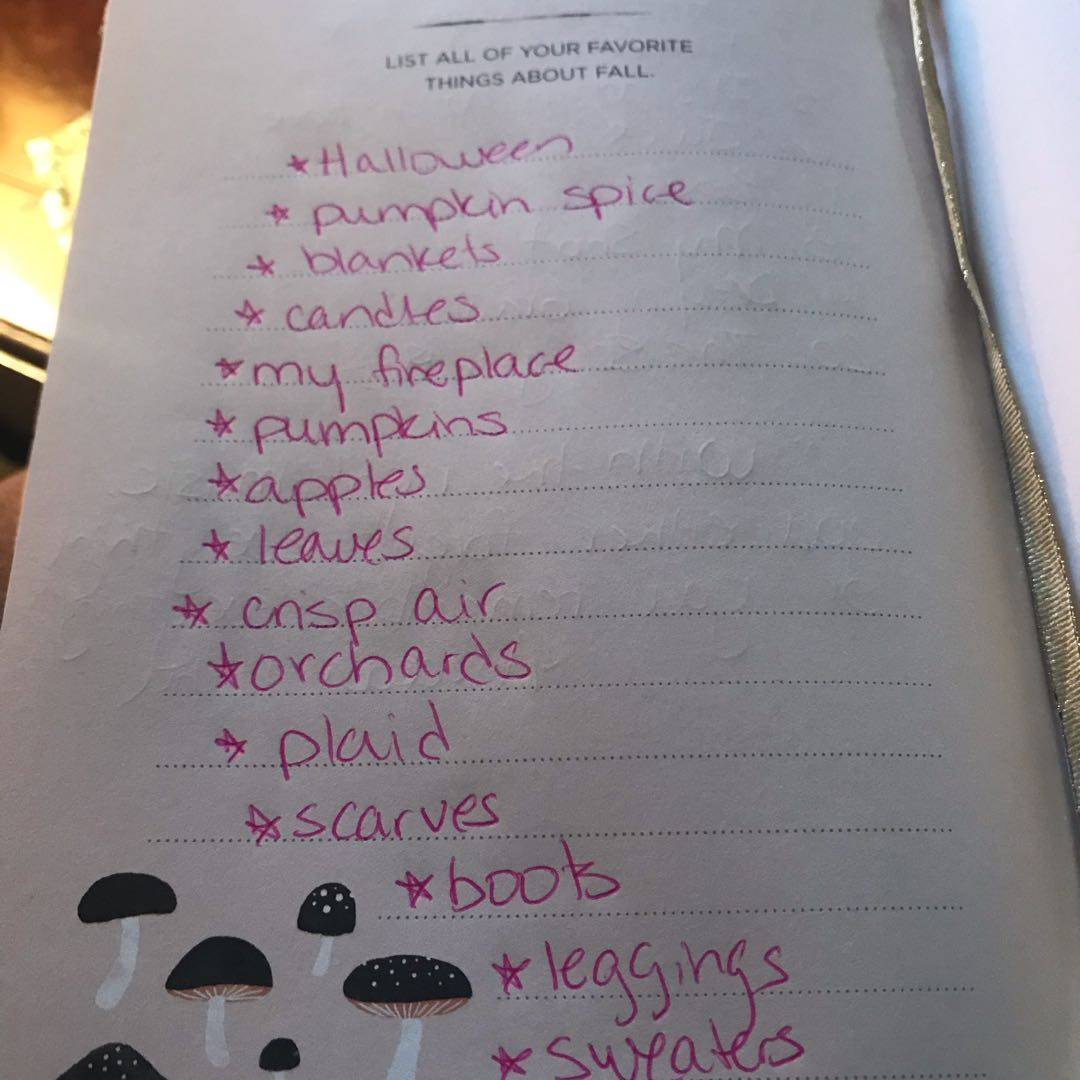 LIST ALL OF YOUR FAVORITE
THINGS ABOUT FALL.
* Halloween
* pumpkin spice
* blankets
* candles
* my fireplace
* pumpkins
* apples
* leaves
* crisp air
* orchards
* plaid
* scarves
* boots
* leggings
* sweaters